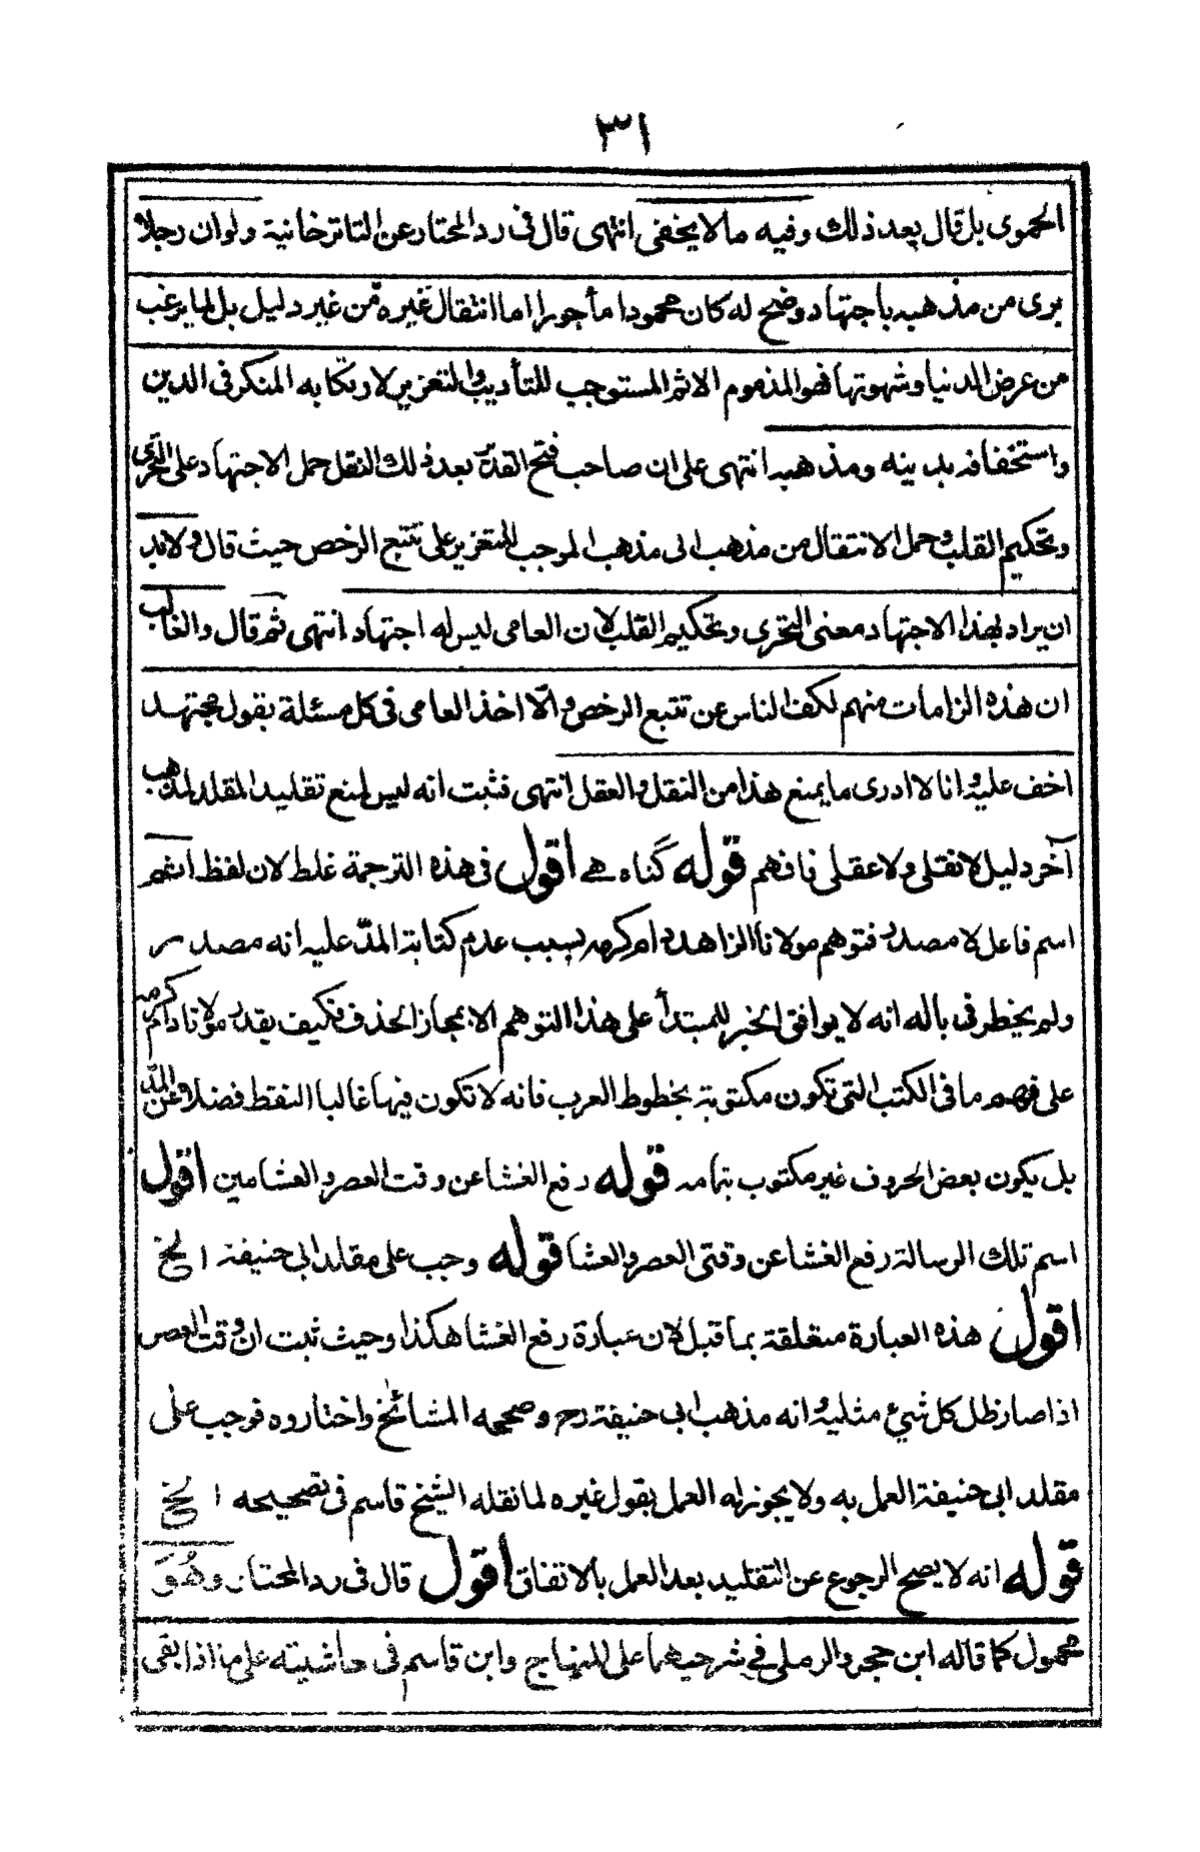 ٣١
الحموى بل قال بعد ذلك وفيه ما لا يخفى انتهى قال فى رد المحتار عن التاتر خانية ولو ان رجلا
برى من مذهبه باجتهاد وضح له كان محمودا مأجورا اما انتقال غيره من غير دليل بل لما يرغب
من عرض الدنيا وشهوتها فهو المذموم الاثم المستوجب للتأديب والتعزير لارتكابه المنكر فى الدين
واستخفافه بدينه ومذهبه انتهى على ان صاحب فتح القدير بعد ذلك النقل حمل الاجتهاد على التحرى
وتحكيم القلب وحمل الانتقال من مذهب الى مذهب الموجب للتعزير على تتبع الرخص حيث قال ولابد
ان يراد بهذا الاجتهاد معنى التحرى وتحكيم القلب لان العامى ليس له اجتهاد انتهى ثم قال والغالب
ان هذه الزامات منهم لكف الناس عن تتبع الرخص والّا اخذ العامى فى كل مسئلة بقول مجتهد
اخف عليه وانا لا ادرى ما يمنع هذا من النقل والعقل انتهى فثبت انه ليس لمنع تقليد المقلد لمذهب
آخر دليل لا نقلى ولا عقلى فافهم قوله گناه هے اقول فى هذه الترجمة غلط لان لفظ اثم
اسم فاعل لا مصدر فتوهم مولانا الزاهد دام كرمه بسبب عدم كتابة المدّ عليه انه مصدر
ولم يخطر فى باله انه لا يوافق الخبر للمبتدأ على هذا التوهم الا بمجاز الحذف فكيف يقدر مولانا دام كرمه
على فهم ما فى الكتب التى تكون مكتوبة بخطوط العرب فانه لا تكون فيها غالبا النقط فضلا عن المدّ
بل يكون بعض الحروف غير مكتوب بتمامه قوله رفع الغشا عن وقت العصر والعشا مين اقول
اسم تلك الرسالة رفع الغشا عن وقتى العصر والعشا قوله وجب على مقلد ابى حنيفة الخ
اقول هذه العبارة متعلقة بما قبل لان عبارة رفع الغشا هكذا وحيث ثبت ان وقت العصر
اذا صار ظل كل شيئ مثليه وانه مذهب ابى حنيفة رح وصححه المشائخ واختاروه فوجب على
مقلد ابى حنيفة العمل به ولا يجوز له العمل بقول غيره لما نقله الشيخ قاسم فى تصحيحه الخ
قوله انه لا يصح الرجوع عن التقليد بعد العمل بالاتفاق اقول قال فى رد المحتار وهُوَ
محمول كما قاله ابن حجر والرملى فى شرحيهما على المنهاج وابن قاسم فى حاشيته على ما اذا بقى